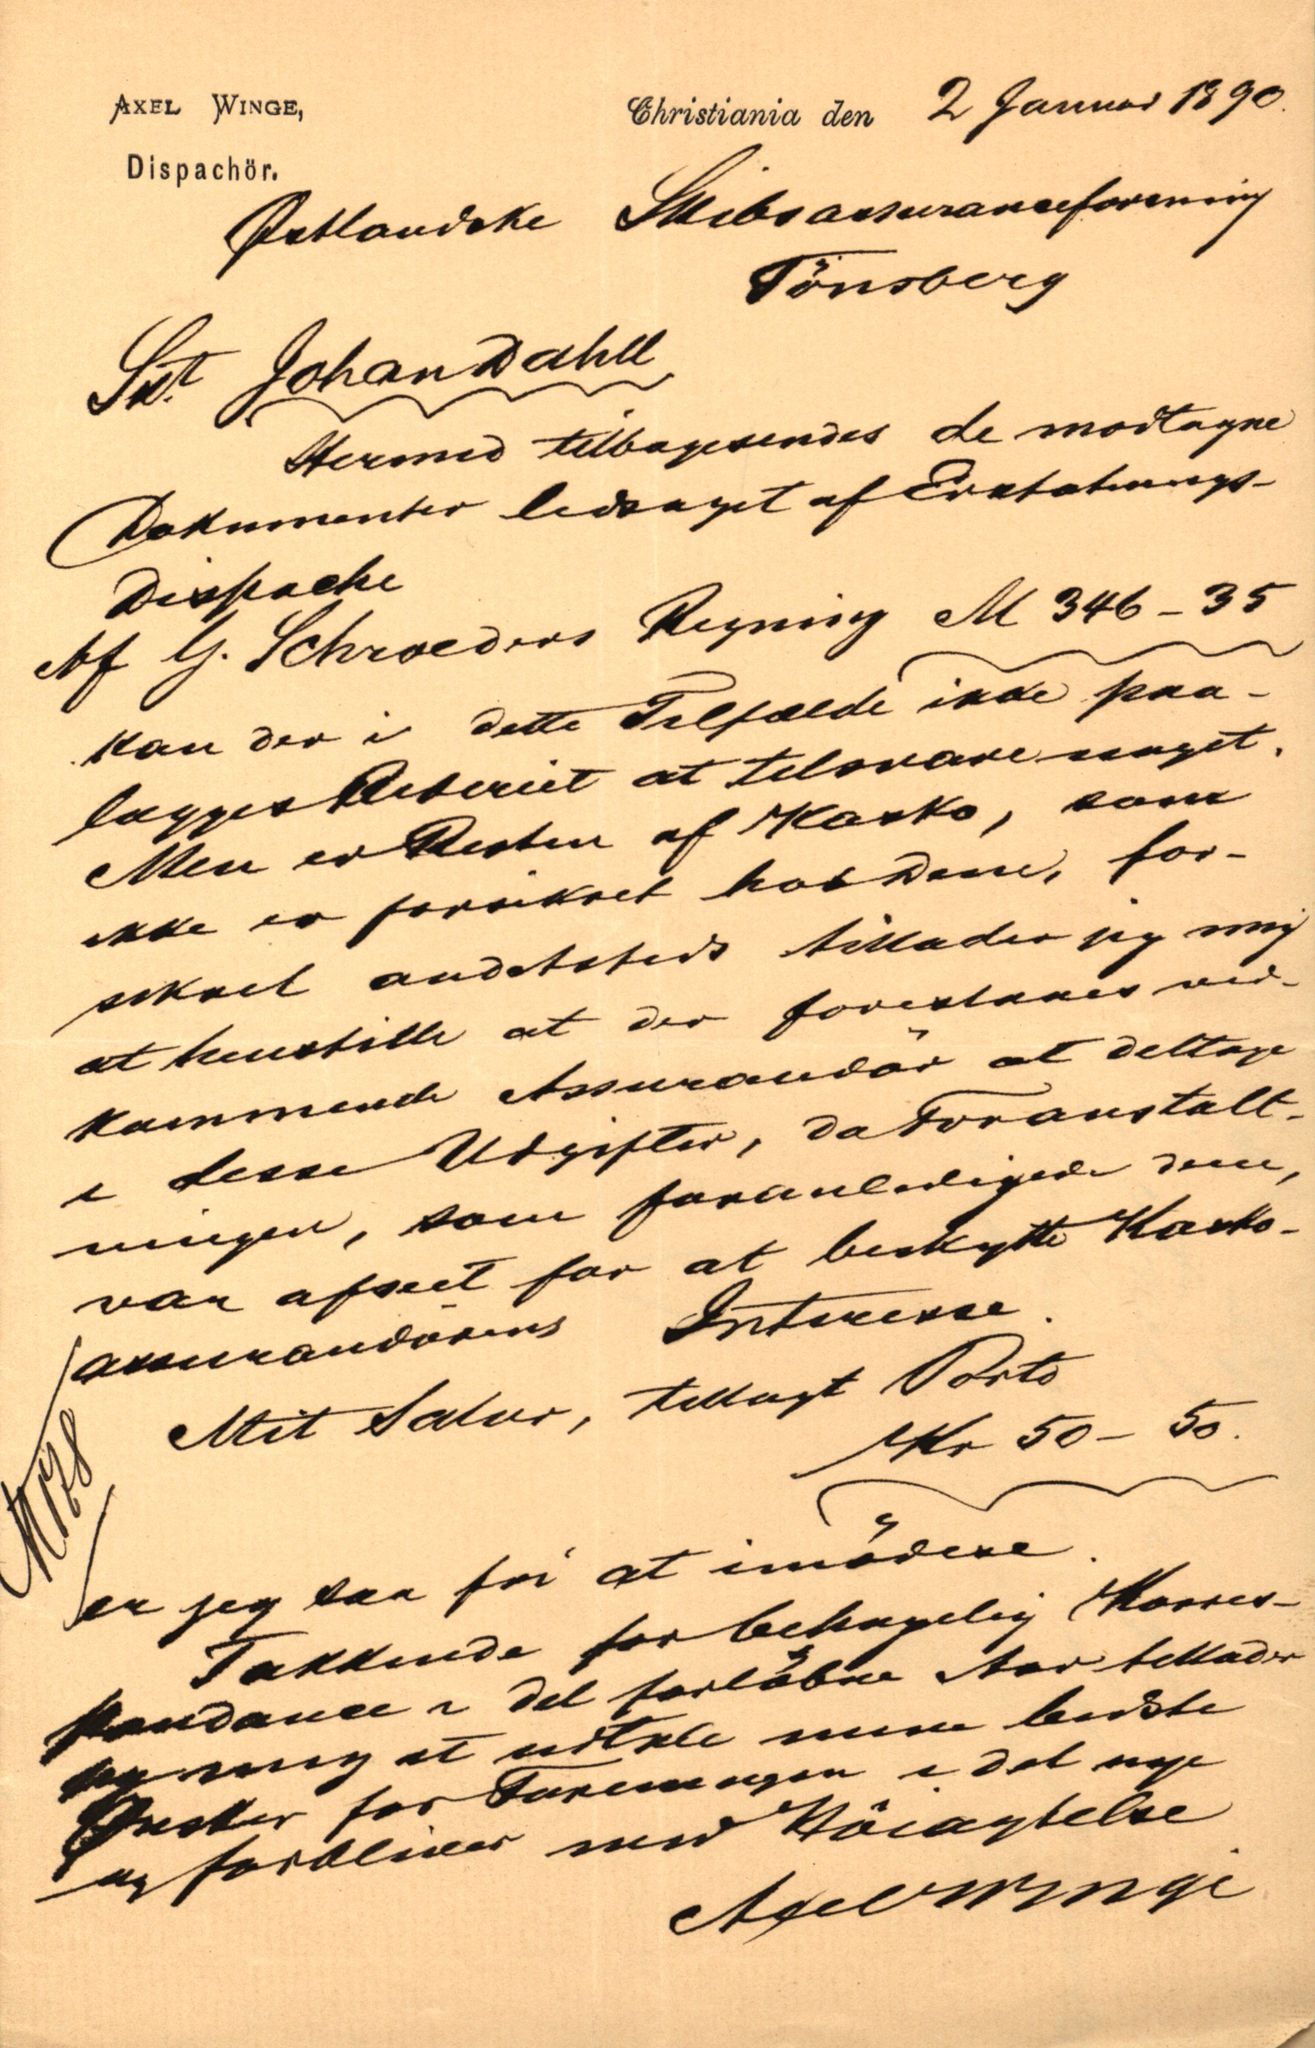 AXEL WINGE,
Dispachör.
Christiania den 2 Januar 1890.
Østlandske Skibsassuranceforening
Tönsberg
Skt. Johan Dahll
Hermed tilbagesendes de modtagne
Dokumenter ledsaget af Erstatnings-
dispache
Af G. Schroeders Regning M 346-35
kan der i dette Tilfælde ikke paa-
lægges Rederiet at tilsvare noget.
Men er Resten af Kasko, som
ikke er forsikret hos Dem, for-
sikret andetsteds tillader jeg mig
at henstille at der foreslaaes ved-
kommende Assurandör at deltage
i disse Udgifter, da Foranstalt-
ningen, som foranledigede dem,
var afseet for at beskytte Kasko-
assurandörens Interesse.
Mit Salær, tillagt Porto
Kr 50-50.
er jeg saa fri at imödese.
Takkende for behagelig Korres-
pondance i det forlöbne Aar tillader
jeg mig at udtale mine bedste
Ønsker for Foreningen i det nye
og forbliver med Höiagtelse
Axel Winge